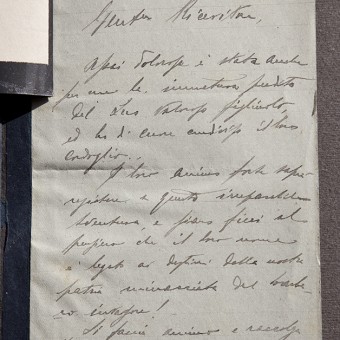 Gentm Ricevitore,
Assai dolorosa è stata anche
per me la immatura perdita
del Suo valoroso figliuolo,
ed ho di cuore condiviso il loro
cordoglio.
Il loro animo forte sappia
resistere a questa irreparabile
sventura, e siano fieri al
pensiero che il loro nome
è legato ai destini della nostra
patria minacciata del barba
ro invasore!
Si faccia animo e raccolga